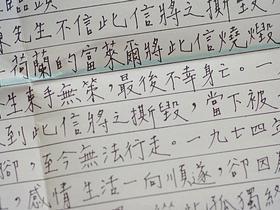 陳先生不信此信將之撕毀
荷蘭的富萊爾將此信燒燬
生束手無策,最後不幸身亡。一
到此信將之撕毀,當下被
腳,至今無法行走。一九七四
,感情生活一向順遂,卻因
孤獨